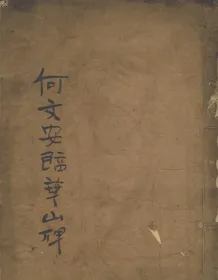 何文安臨華山碑